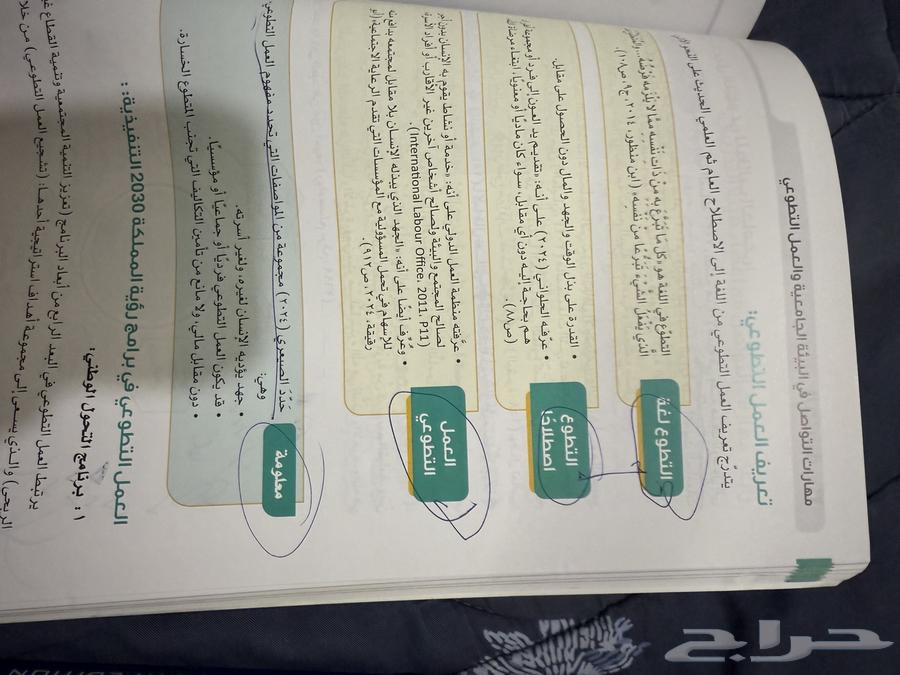 مهارات التواصل في البيئة الجامعية والعمل التطوعي
تعريف العمل التطوعي:
يتدرّج تعريف العمل التطوعي من اللغة إلى الاصطلاح العام ثم العلمي الحديث على النحو
التطوع لغة
التطوّع في اللغة هو «كل مَا تَبَرَّعْتَ بِهِ مِنْ ذَاتِ نَفْسِهِ ممَّا لَا يَلْزَمه فَرْضُهُ...
الَّذي يَفْعَلُ الشَّيْءَ تَبَرُّعًا مِنْ نَفْسِهِ» (ابن منظور، ٢٠١٤، ج٩، ص١٠٨).
التطوع
اصطلاحًا
• القدرة على بذل الوقت والجهد والمال دون الحصول على مقابل.
• عرّفه الحلواني (٢٠٢٤) على أنه: «تقديم يد العون إلى فرد أو مجموعة
هم بحاجة إليه دون أي مقابل، سواء كان ماديًا أو معنويًا، ابتغاء مرضاة
(ص٨٨)
العمل
التطوعي
• عرّفته منظمة العمل الدولي على أنه: «خدمة أو نشاط يقوم به الإنسان بدون أجر
لصالح المجتمع والبيئة ولصالح أشخاص آخرين غير الأقارب أو أفراد
(International Labour Office، 2011، P11).
• وعُرِّف أيضًا على أنه: «الجهد الذي يبذله الإنسان بلا مقابل لمجتمعه بدافع منه
للإسهام في تحمل المسؤولية مع المؤسسات التي تقدم الرعاية الاجتماعية
رقيقة، ٢٠٢٤، ص٩١٢).
معلومة
حَدَّدَ الصبعري (٢٠٢٤) مجموعة من المواصفات التي تحدد مفهوم العمل التطوعي
وهي:
• جهد يؤديه الإنسان لغيره، ولغير أسرته.
• قد يكون العمل التطوعي فرديًا أو جماعيًا أو مؤسسيًا.
• دون مقابل مالي، ولا مانع من تأمين التكاليف التي تجنب المتطوع الخسارة.
العمل التطوعي في برامج رؤية المملكة 2030 التنفيذية::
١: برنامج التحول الوطني:
يرتبط العمل التطوعي في البعد الرابع من أبعاد البرنامج (تعزيز التنمية المجتمعية وتنمية القطاع
الربحي) والذي يسعى إلى مجموعة أهداف استراتيجية أحدها: (تشجيع العمل التطوعي) من
حراج